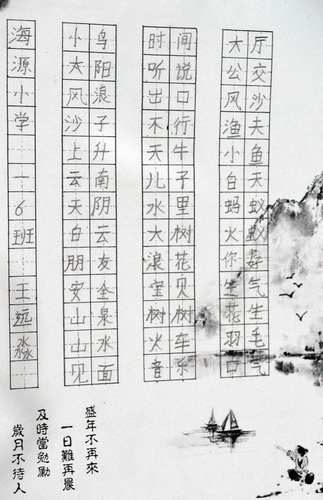 海源小学一6班王远淼
小鸟
太阳
风浪
沙子
上升
云南
天阴
白云
朋友
安全
山泉
山水
见面
时间
听说
出口
不行
天牛
儿子
水里
大树
浪花
宝贝
树树
火车
音乐
大厅
公交
风沙
渔夫
小鱼
白天
蚂蚁
火蚁
你好
生气
花生
羽毛
口气
盛年不再來
一日難再晨
及時當勉勵
歲月不待人